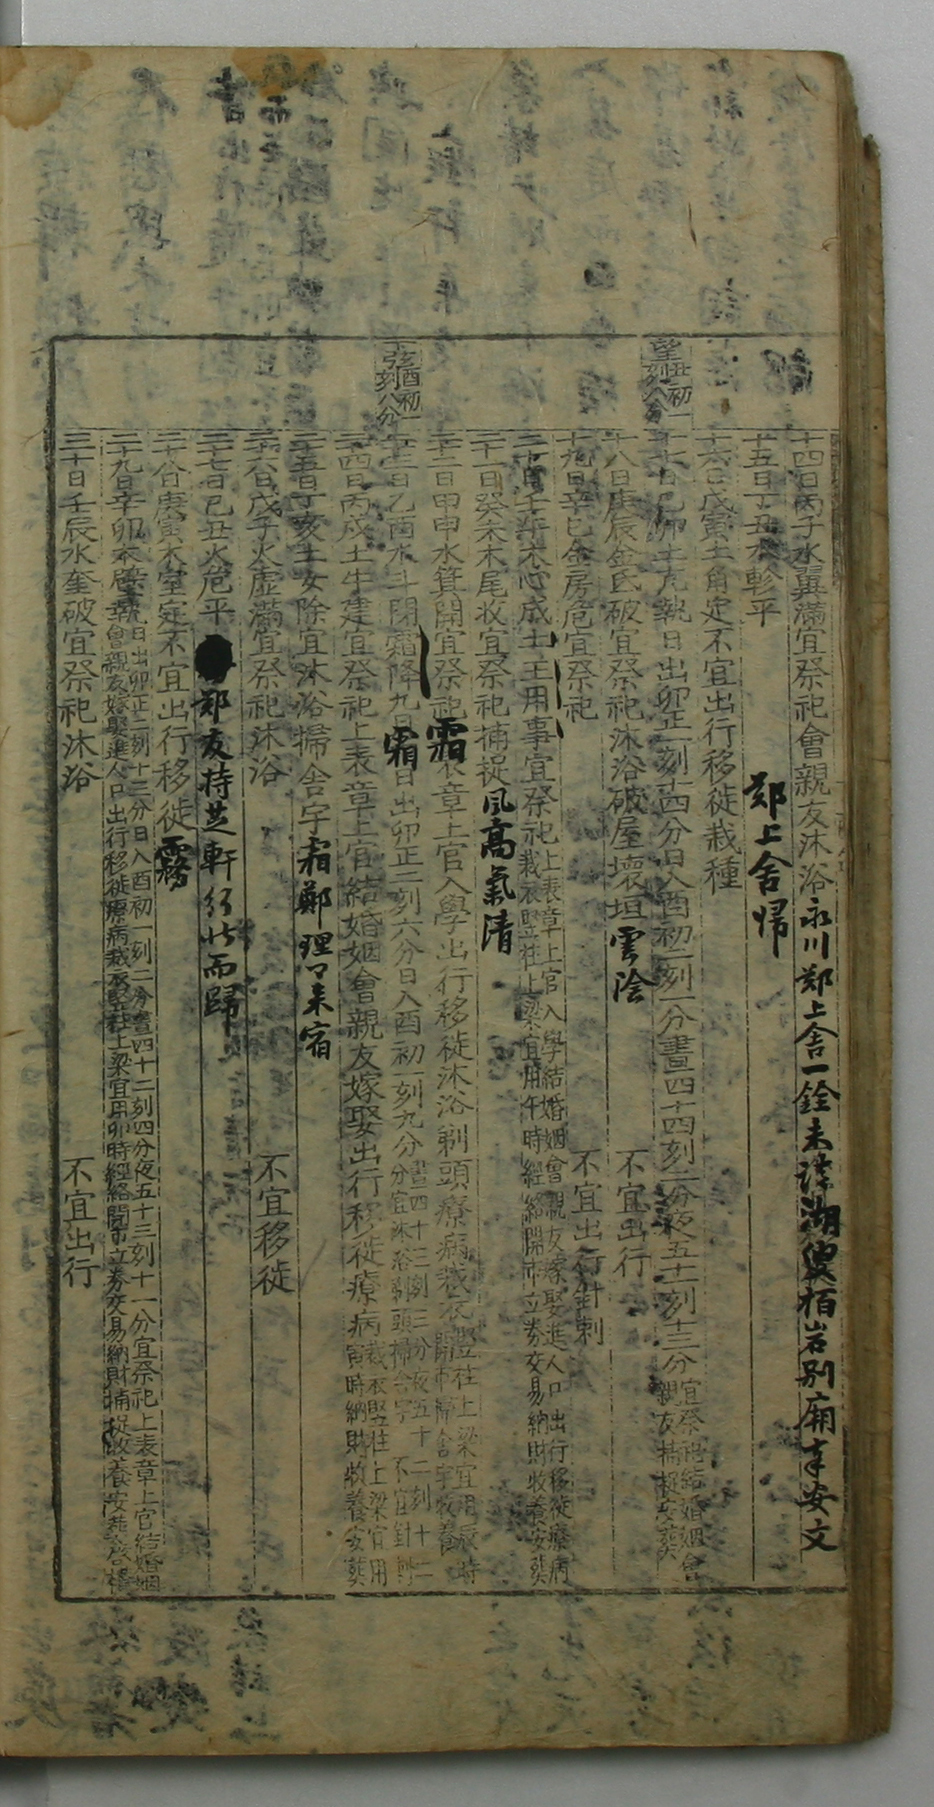 十四日丙子水翼滿宜祭祀會親友沐浴 永川鄭上舍一銓未
十五日丁丑水軫平 鄭上舍帰
十六日戊寅土角定不宜出行移徙栽種
望丑初一刻八分
十七日己卯土亢執日出卯正一刻十四分日入酉初二刻一分晝四十四刻二分夜五十一刻十三分宜祭祀結婚姻會親友捕捉安葬
十八日庚辰金氐破宜祭祀沐浴破屋壞垣 雲陰 不宜出行
十九日辛巳金房危宜祭祀 不宜出行針刺
二十日壬午木心成土王用事宜祭祀上表章上官入學結婚姻會親友嫁娶進人口出行移徙療病裁衣竪柱上梁宜用午時經絡開市立券交易納財收養安葬
二十一日癸未木尾收宜祭祀捕捉 風高氣清
二十二日甲申水箕開宜祭祀 霜 表章上官入學出行移徙沐浴剃頭療病裁衣竪柱上梁宜用辰時開市掃舍宇收養
下弦酉初一刻八分
二十三日乙酉水斗閉霜降九月 霜 日出卯正二刻六分日入酉初一刻九分晝四十三刻三分夜五十二刻十二分宜沐浴剃頭掃舍宇不宜針刺
二十四日丙戌土牛建宜祭祀上表章上官結婚姻會親友嫁娶出行移徙療病裁衣竪柱上梁宜用寅時納財收養安葬
二十五日丁亥土女除宜沐浴掃舍宇 霜鄭理 來宿
二十六日戊子火虛滿宜祭祀沐浴 不宜移徙
二十七日己丑火危平 鄭友持芝軒 而歸
二十八日庚寅木室定不宜出行移徙 霧
二十九日辛卯木壁執日出卯正二刻十三分日入酉初一刻二分晝四十二刻四分夜五十三刻十一分宜祭祀上表章上官結婚姻會親友嫁娶進人口出行移徙療病裁衣竪柱上梁宜用卯時經絡開市立券交易納財捕捉收養安葬
三十日壬辰水奎破宜祭祀沐浴 不宜出行